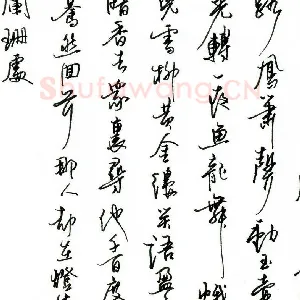 路鳳簫聲動玉壺
光轉一夜魚龍舞蛾
兒雪柳黃金縷笑語盈
暗香去衆裏尋他千百度
驀然回首那人却在燈
闌珊處
Shufawang.CN